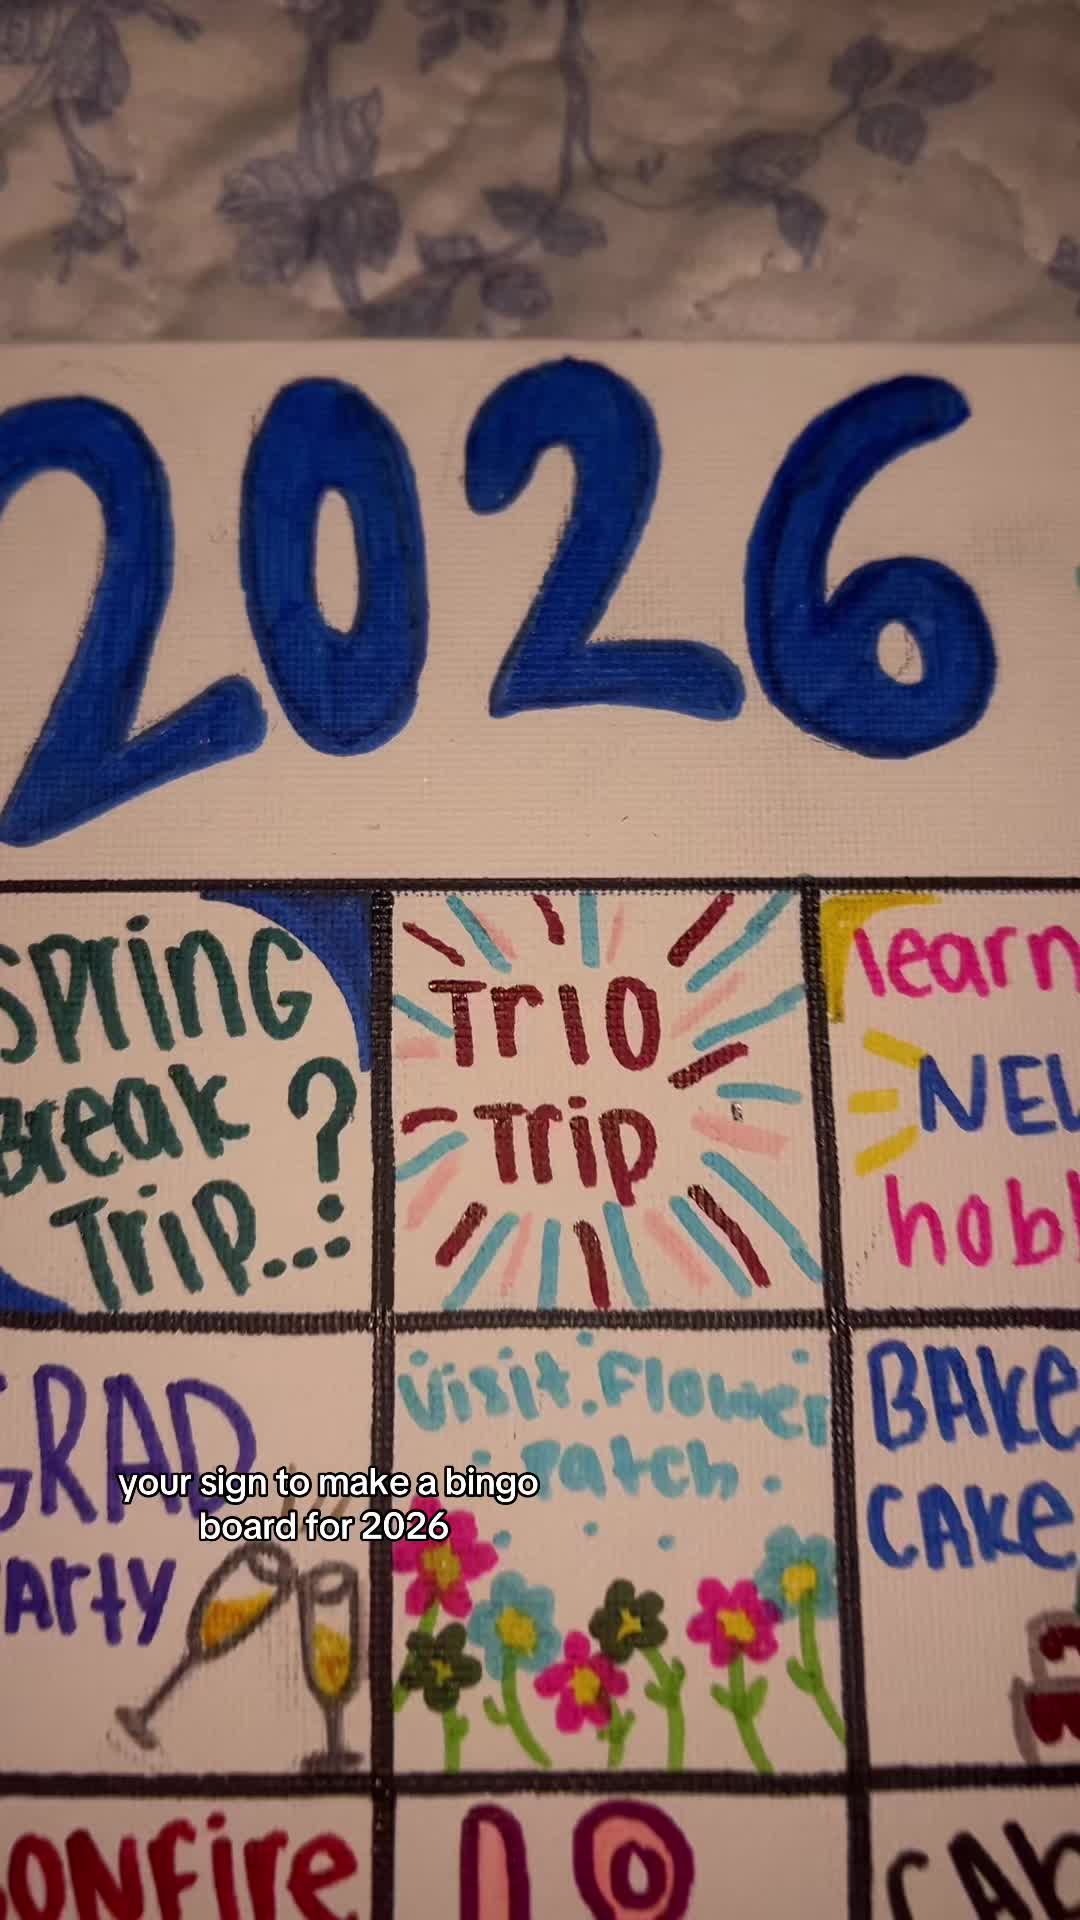 2026
Spring
Break ?
Trip...
Trio
Trip
learn
NEW
hobb
GRAD
Party
Visit Flower
Patch
BAke
CAke
your sign to make a bingo
board for 2026
BONFire
18
CAb